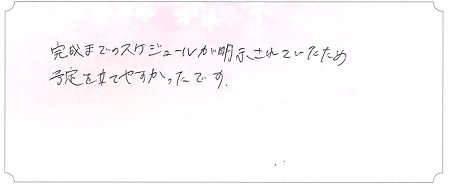 完成までのスケジュールが明示されていたため
予定を立てやすかったです.